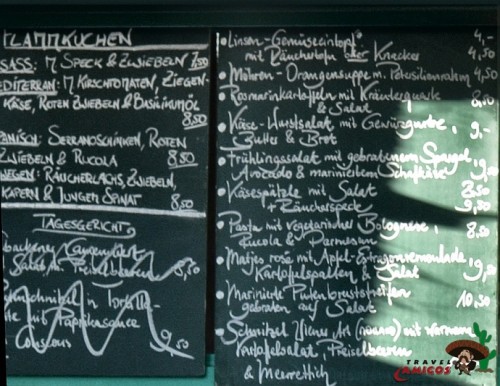 FLAMMKUCHEN
SASS: M. SPECK & ZWIEBELN 7,50
EDITERRAN: M. KIRSCHTOMATEN, ZIEGEN-
KÄSE, ROTEN ZWIEBELN & BASILIKUMÖL
8,50
PANISCH: SERRANOSCHINKEN, ROTEN
ZWIEBELN & RUCOLA 8,50
WEGEN: RÄUCHERLACHS, ZWIEBELN,
KAPERN & JUNGEM SPINAT 8,50
TAGESGERICHT
Camembert
Salat m. Preiselbeeren 8,50
schnitzel in
mit Paprikasauce
Couscous 9,50
• Linsen-Gemüseeintopf 4,-
mit Räuchertofu oder Knacker 4,50
• Möhren-Orangensuppe m. Petersilienrahm 4,50
• Rosmarinkartoffeln mit Kräuterquark
& Salat
• Käse-Wurstsalat mit Gewürzgurke, 9,-
Butter & Brot
• Frühlingssalat mit gebratenem Spargel,
Avocado & mariniertem Schafskäse
• Käsespätzle mit Salat
+ Räucherspeck 9,50
• Pasta mit vegetarischer Bolognese, 8,50
Rucola & Parmesan
• Matjes rosé mit Apfel-Estragonremoulade,
Kartoffelspalten & Salat
• Marinierte Putenbruststreifen 10,50
gebraten auf Salat
• Schnitzel Wiener Art mit warmem
Kartoffelsalat, Preiselbeeren
& Meerrettich
TRAVEL
AMIGOS